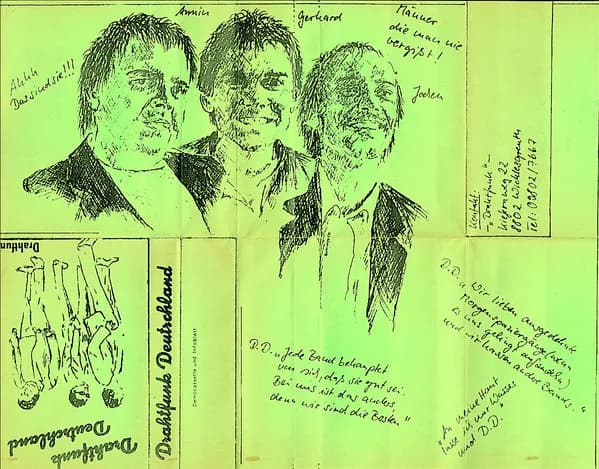 Ahhh
Das sind sie!!!
Armin
Gerhard
Männer
die man nie
vergißt!
Jochen
Kontakt:
"Drahtfunk"
22
8802
Tel: 09802/7667
Drahtfun
Drahtfunk
Deutschland
Drahtfunk Deutschland
Democassette und Infoblatt
D.D. „Jede Band behauptet
von sich, daß sie gut sei.
Bei uns ist das anders,
denn wir sind die Besten"
D.D. „Wir lieben ausgedehnte
Morgenspaziergänge (wenn
es uns gelingt aufzustehn)
und wir hassen andere Bands."
„An meine Haut
lasse ich nur Wasser
und D.D."